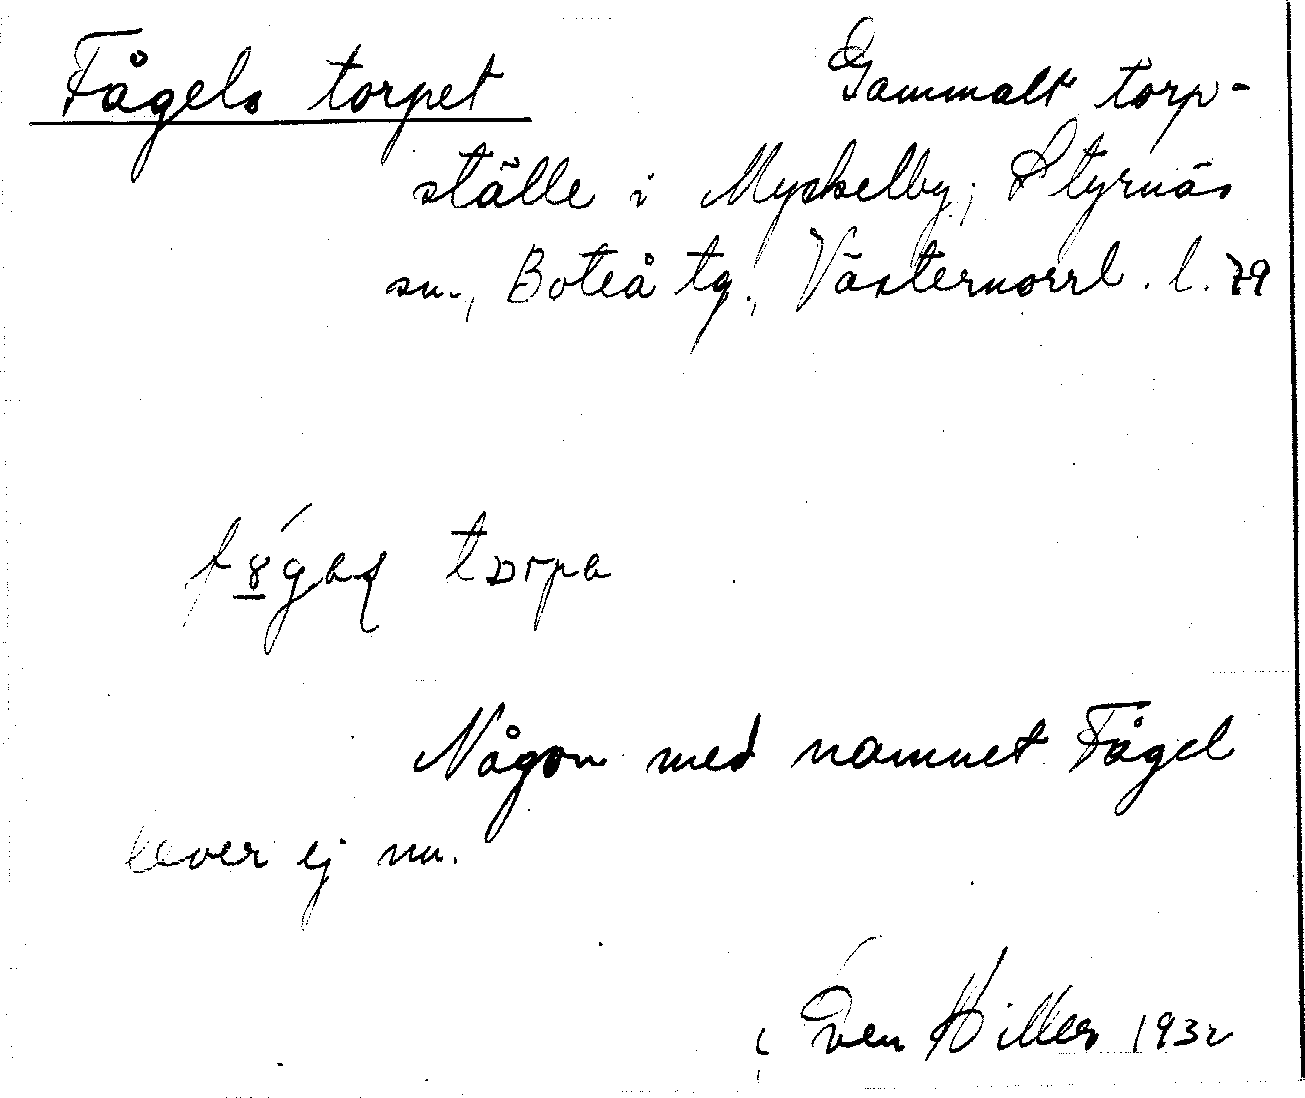 Fågels torpet Gammalt torp-
ställe i Myckelby, Styrnäs
sn., Boteå tg., Västernorrl. l. 79
torpa
Någon med namnet Fågel
lever ej nu.
Sven Hiller 1932